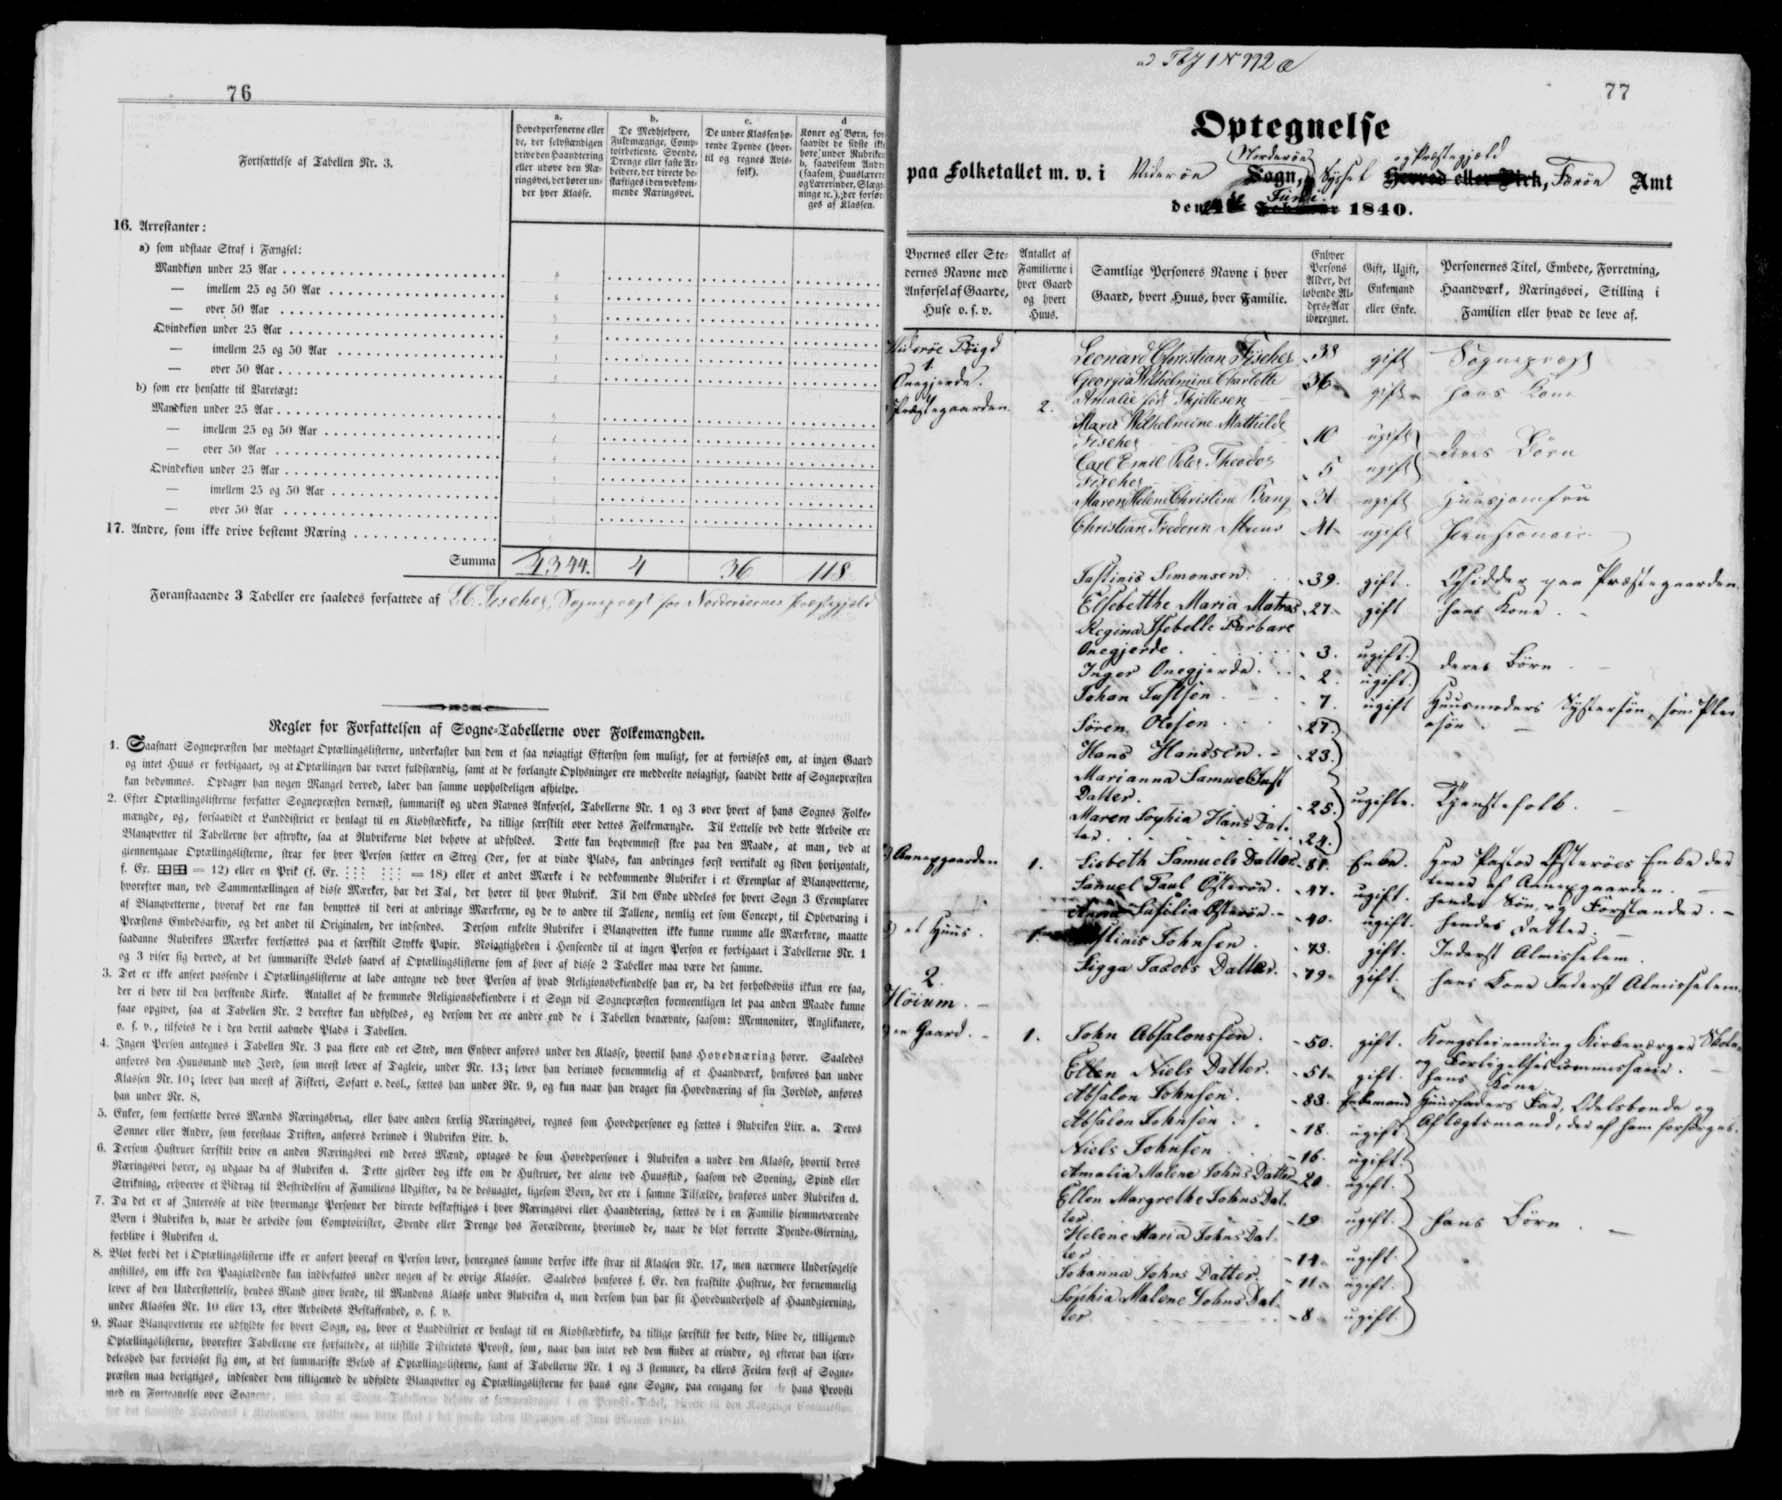 76
Fortsættelse af Tabellen Nr. 3.
a.
Hovedpersonerne eller
de, der selvstændigen
drive den Haandtering
eller udøve den Næ-
ringsvei, der hører un-
der hver Klasse.
b.
De Medhjelpere,
Fuldmægtige, Comp-
toirbetiente, Svende,
Drenge eller faste Ar-
beidere, der directe be-
skæftiges i den vedkom-
mende Næringsvei.
c.
De under Klassen hø-
rende Tyende (hvor-
til og regnes Avls-
folk).
d
Koner og Børn, for
saavidt de sidste ikke
høre under Rubriken
b, saavelsom Andre
(saasom, Huuslærere
og Lærerinder, Slægt-
ninge rc.), der forsør-
ges af Klassen.
16. Arrestanter:
a) som udstaae Straf i Fængsel:
Mandkiøn under 25 Aar
— imellem 25 og 50 Aar
— over 50 Aar
Qvindekiøn under 25 Aar
— imellem 25 og 50 Aar
— over 50 Aar
b) som ere hensatte til Varetægt:
Mandkiøn under 25 Aar
— imellem 25 og 50 Aar
— over 50 Aar
Qvindekiøn under 25 Aar
— imellem 25 og 50 Aar
— over 50 Aar
17. Andre, som ikke drive bestemt Næring
Summa 4 36 118
Foranstaaende 3 Tabeller ere saaledes forfattede af L.C. Fischer, Sognepræst for Norderøernes Præstegjeld
Regler for Forfattelsen af Sogne-Tabellerne over Folkemængden.
1. Saasnart Sognepræsten har modtaget Optællingslisterne, underkaster han dem et saa nøiagtigt Eftersyn som muligt, for at forvisses om, at ingen Gaard
og intet Huus er forbigaaet, og at Optællingen har været fuldstændig, samt at de forlangte Oplysninger ere meddeelte nøiagtigt, saavidt dette af Sognepræsten
kan bedømmes. Opdager han nogen Mangel derved, lader han samme uopholdeligen afhielpe.
2. Efter Optællingslisterne forfatter Sognepræsten dernæst, summarisk og uden Navnes Anførsel, Tabellerne Nr. 1 og 3 over hvert af hans Sognes Folke-
mængde, og, forsaavidt et Landdistrict er henlagt til en Kiøbstædkirke, da tillige særskilt over dettes Folkemængde. Til Lettelse ved dette Arbeide ere
Blanqvetter til Tabellerne her aftrykte, saa at Rubrikerne blot behøve at udfyldes. Dette kan beqvemmest skee paa den Maade, at man, ved at
giennemgaae Optællingslisterne, strax for hver Person sætter en Streg (der, for at vinde Plads, kan anbringes først vertikalt og siden horizontalt,
f. Ex. = 12) eller en Prik (f. Ex. = 18) eller et andet Mærke i de vedkommende Rubriker i et Exemplar af Blanqvetterne,
hvorefter man, ved Sammentællingen af disse Mærker, har det Tal, der hører til hver Rubrik. Til den Ende uddeles for hvert Sogn 3 Exemplarer
af Blanqvetterne, hvoraf det ene kan benyttes til deri at anbringe Mærkerne, og de to andre til Tallene, nemlig eet som Concept, til Opbevaring i
Præstens Embedsarkiv, og det andet til Originalen, der indsendes. Dersom enkelte Rubriker i Blanqvetten ikke kunne rumme alle Mærkerne, maatte
saadanne Rubrikers Mærker fortsættes paa et særskilt Stykke Papir. Nøiagtigheden i Henseende til at ingen Person er forbigaaet i Tabellerne Nr. 1
og 3 viser sig derved, at det summariske Beløb saavel af Optællingslisterne som af hver af disse 2 Tabeller maa være det samme.
3. Det er ikke anseet passende i Optællingslisterne at lade antegne ved hver Person af hvad Religionsbekiendelse han er, da det forholdsviis ikkun ere faa,
der ei høre til den herskende Kirke. Antallet af de fremmede Religionsbekiendere i et Sogn vil Sognepræsten formeentligen let paa anden Maade kunne
faae opgivet, saa at Tabellen Nr. 2 derefter kan udfyldes, og dersom der ere andre end de i Tabellen benævnte, saasom: Memnoniter, Anglikanere,
o. s. v., tilføies de i den dertil aabnede Plads i Tabellen.
4. Ingen Person antegnes i Tabellen Nr. 3 paa flere end eet Sted, men Enhver anføres under den Klasse, hvortil hans Hovednæring hører. Saaledes
anføres den Huusmand med Jord, som meest lever af Dagleie, under Nr. 13; lever han derimod fornemmelig af et Haandværk, henføres han under
Klassen Nr. 10; lever han meest af Fiskeri, Søfart o. desl., sættes han under Nr. 9, og kun naar han drager sin Hovednæring af sin Jordlod, anføres
han under Nr. 8.
5. Enker, som fortsætte deres Mænds Næringsbrug, eller have anden særlig Næringsvei, regnes som Hovedpersoner og sættes i Rubriken Litr. a. Deres
Sønner eller Andre, som forestaae Driften, anføres derimod i Rubriken Litr. b.
6. Dersom Hustruer særskilt drive en anden Næringsvei end deres Mænd, optages de som Hovedpersoner i Rubriken a under den Klasse, hvortil deres
Næringsvei hører, og udgaae da af Rubriken d. Dette gjelder dog ikke om de Hustruer, der alene ved Huusflid, saasom ved Syening, Spind eller
Strikning, erhverve et Bidrag til Bestridelsen af Familiens Udgifter, da de desuagtet, ligesom Børn, der ere i samme Tilfælde, henføres under Rubriken d.
7. Da det er af Interesse at vide hvormange Personer der directe beskæftiges i hver Næringsvei eller Haandtering, sættes de i en Familie hiemmeværende
Børn i Rubriken b, naar de arbeide som Comptoirister, Svende eller Drenge hos Forældrene, hvorimod de, naar de blot forrette Tyende-Gierning,
forblive i Rubriken d.
8. Blot fordi det i Optællingslisterne ikke er anført hvoraf en Person lever, henregnes samme derfor ikke strax til Klassen Nr. 17, men nærmere Undersøgelse
anstilles, om ikke den Paagiældende kan indbefattes under nogen af de øvrige Klasser. Saaledes henføres f. Ex. den fraskilte Hustrue, der fornemmelig
lever af den Understøttelse, hendes Mand giver hende, til Mandens Klasse under Rubriken d, men dersom hun har sit Hovedunderhold af Haandgierning,
under Klassen Nr. 10 eller 13, efter Arbeidets Beskaffenhed, o. s. v.
9. Naar Blanqvetterne ere udfyldte for hvert Sogn, og, hvor et Landdistrict er henlagt til en Kiøbstædkirke, da tillige særskilt for dette, blive de, tilligemed
Optællingslisterne, hvorefter Tabellerne ere forfattede, at tilstille Districtets Provst, som, naar han intet ved dem finder at erindre, og efterat han især-
deleshed har forvisset sig om, at det summariske Beløb af Optællingslisterne, samt af Tabellerne Nr. 1 og 3 stemmer, da ellers Feilen først af Sogne-
præsten maa berigtiges, indsender dem tilligemed de udfyldte Blanqvetter og Optællingslisterne for hans egne Sogne, paa eengang for hans Provsti
med en Fortegnelse over Sognene
77
Optegnelse
Norderøe og Præstegjæld
paa Folketallet m. v. i Viderøe Sogn, Syssel Herred eller Birk, Færøe Amt
den 1840.
Byernes eller Ste-
dernes Navne med
Anførsel af Gaarde,
Huse o. s. v.
Antallet af
Familierne i
hver Gaard
og hvert
Huus.
Samtlige Personers Navne i hver
Gaard, hvert Huus, hver Familie.
Enhver
Persons
Alder, det
løbende Al-
ders-Aar
iberegnet.
Gift, Ugift,
Enkemand
eller Enke.
Personernes Titel, Embede, Forretning,
Haandværk, Næringsvei, Stilling i
Familien eller hvad de leve af.
Viderøe Bøigd Leonard Christian Fischer 38 gift Sognepræst
1.
Onegjerde. Georgia Wilhelmine Charlotte 36 gift hans Kone
Præstegaarden 2. Amalie født
Maria Wilhelmine Mathilde
Fischer 10 ugift
deres Børn
Carl Emil Peter Theodor
Fischer 5 ugift
Maren Helene Christine Bang 31 ugift Huusjomfru
Christian Frederik 41 ugift Pensionair
Justinis Simonsen 39. gift. Opsidder paa Præstegaarden
Elsebetthe Maria Matras 27. gift hans Kone.
Regina Isebelle Barbare
Onegjerde 3. ugift.
deres Børn
Inger Onegjerde 2. ugift.
Johan Justsen 7. ugift Huusmoders Søstersøn, som Plei-
esøn.
Søren Olesen 27.
Hans Hanssen 23.
Marianna Samuel Just
Datter. 25. ugifte. Tjenestefolk.
Maren Sophia Hans Dat-
ter 24.
Annexgaarden 1. Lisbeth Samuels Datter 81. Enke. Hr Pastor Østerøes Enke der
lever af Annexgaarden.
Samuel Paul Østerøe. 47. ugift. hendes Søn og Forstander.
Anna Susilia Østerøe. 40. ugift. hendes Datter.
et Huus. 1. Justinis Johnsen. 73. gift. Inderst Almisselem.
Sigga Jacobs Datter. 79. gift. hans Kone Inderst Almisselem.
2.
Hõium.
en Gaard. 1. John Absalonssen. 50. gift. Kongsleilending Kirkeværger Skole-
og Forligelsescommissair.
Ellen Niels Datter. 51. gift. hans Kone.
Absalon Johnsen. 83. Enkemand Huusfaders Far, Odelsbonde og
Aftægtsmand, der af ham forsørges.
Absalon Johnsen. 18. ugift.
Niels Johnsen 16. ugift.
Amalia Malene Johns Datter 20. ugift.
Ellen Margrethe Johns Dat-
ter. 19. ugift. hans Børn.
Helene Maria Johns Dat-
ter 14. ugift.
Johanna Johns Datter. 11. ugift.
Sophia Malene Johns Dat-
ter. 8. ugift.